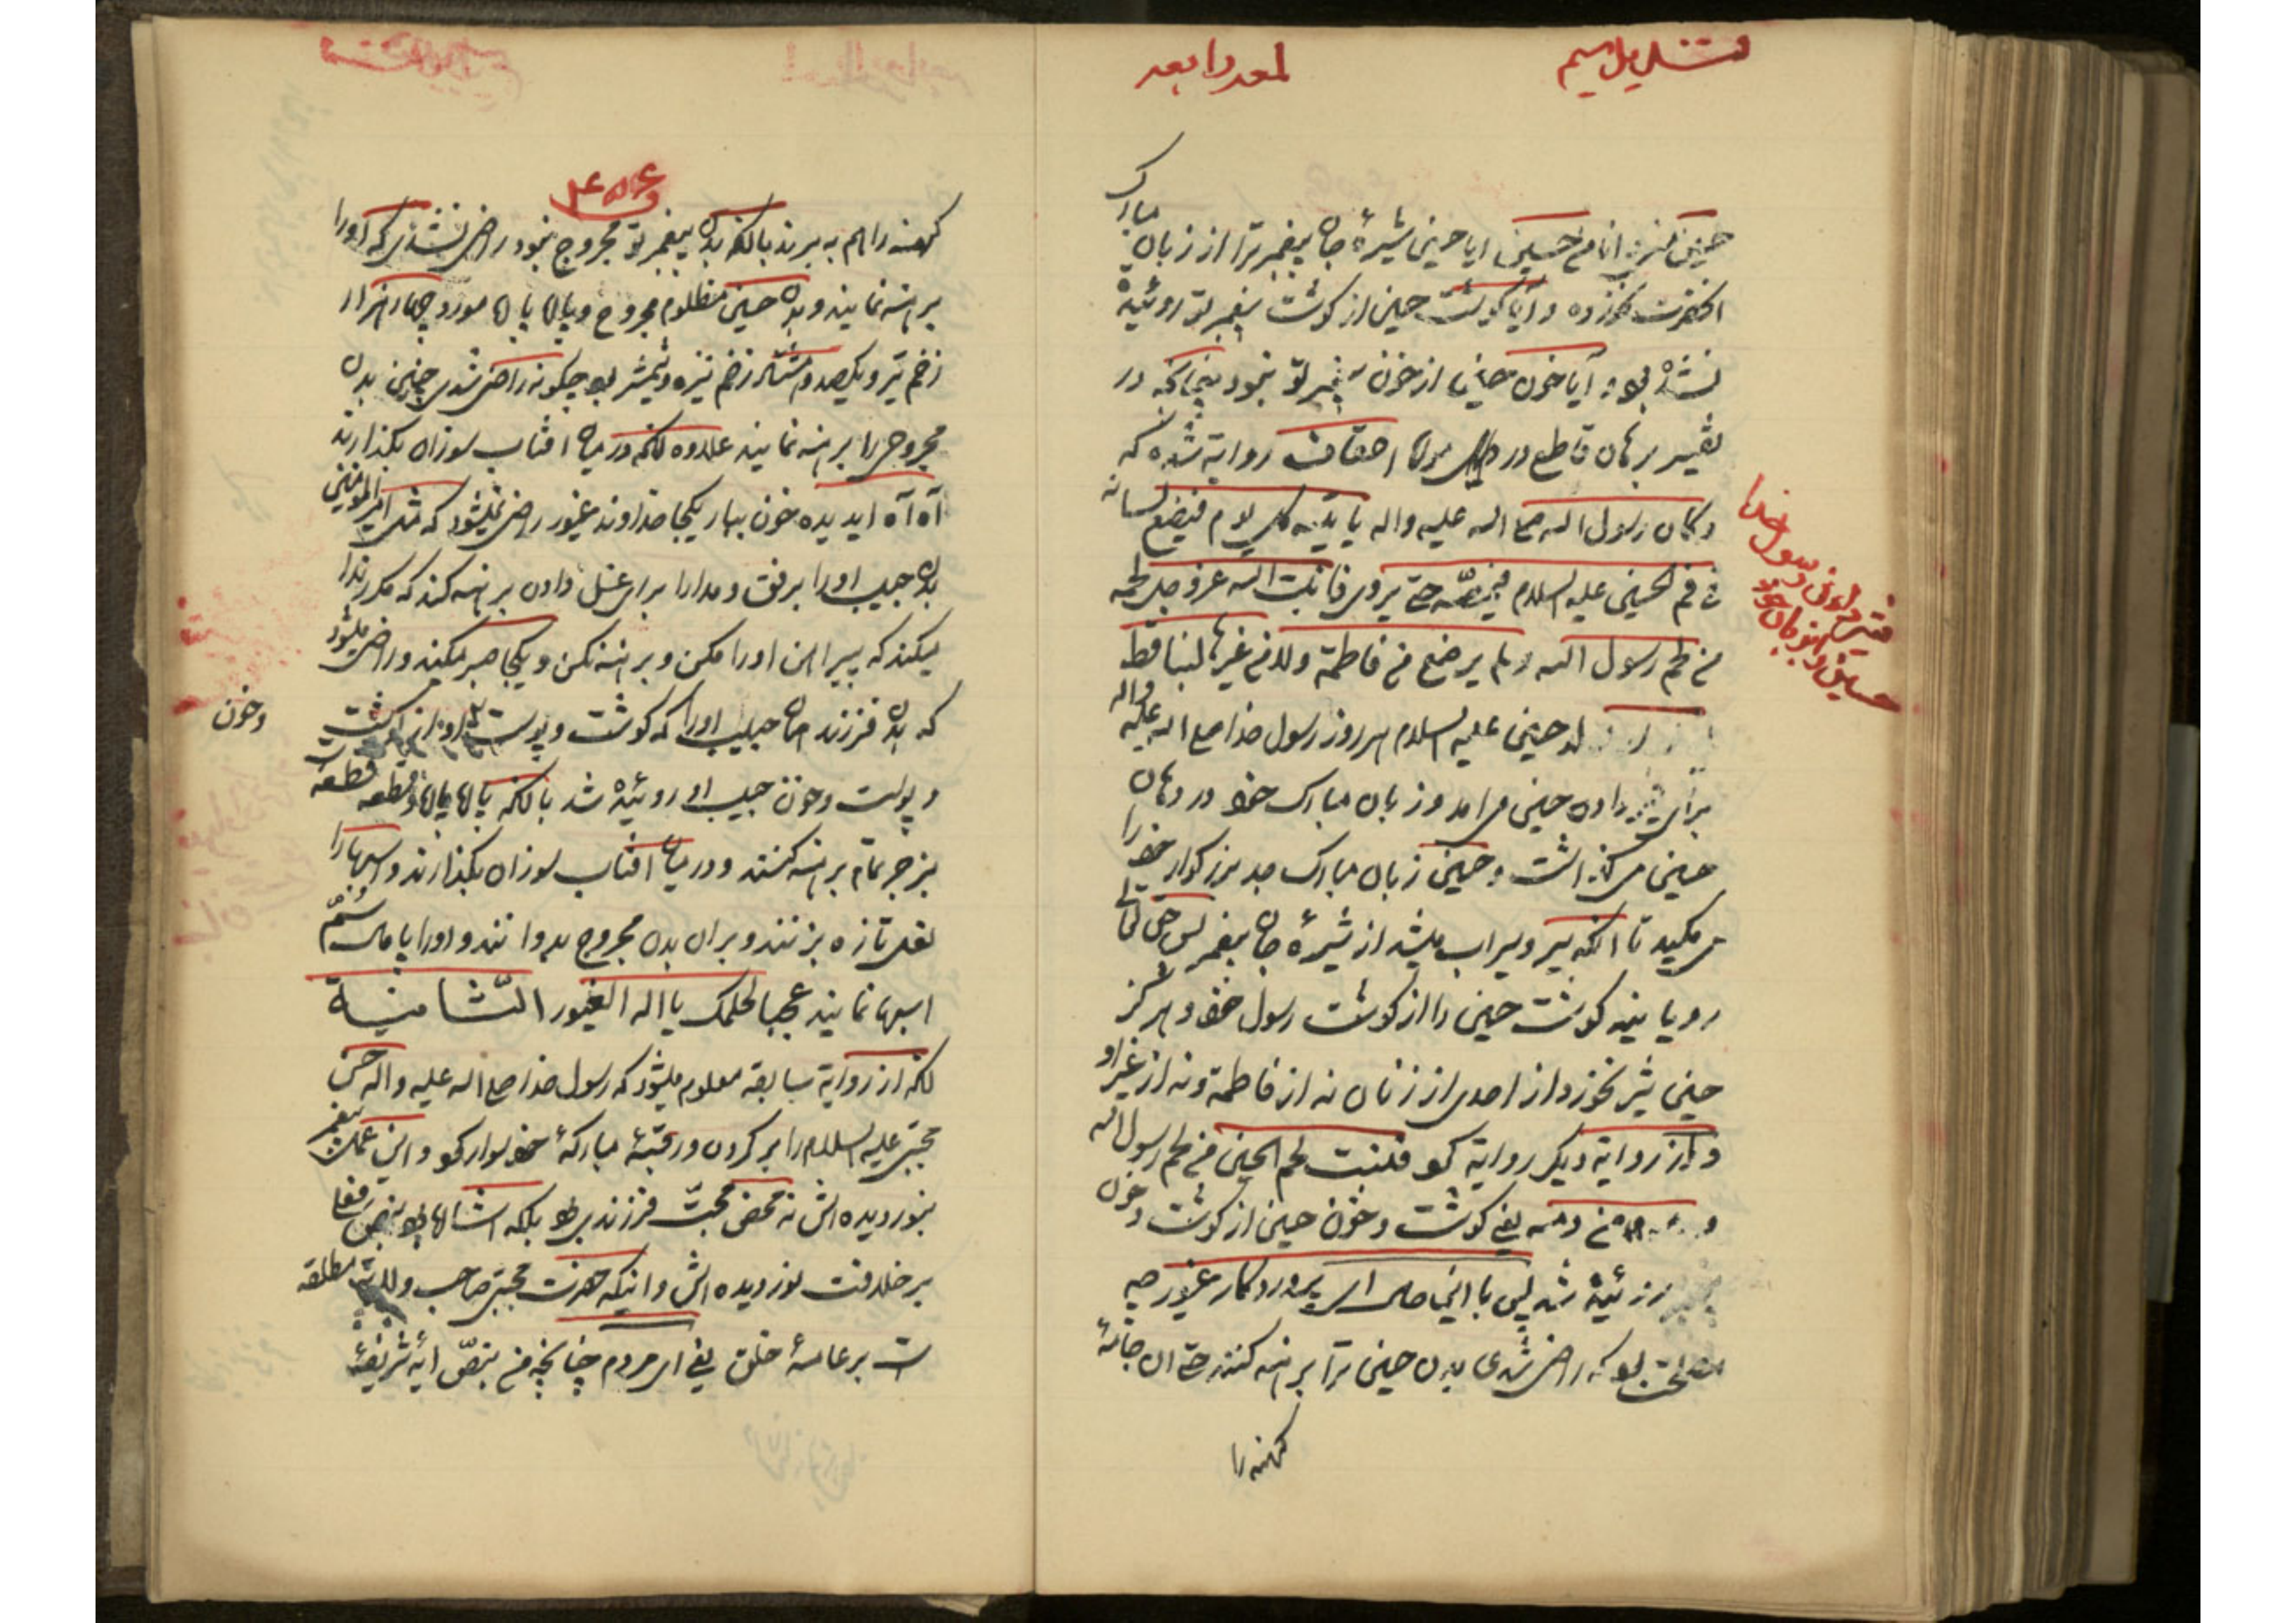 لمعه رابعه
مبارک
حسین منی و انا من حسین ایا حسین شیرهٔ جان پیغمبر ترا از زبان
انحضرت نخورده و آیا گوشت حسین از گوشت پیغمبر تو روئیده
نشده بود و آیا خون حسین از خون پیغمبر تو نبود چنانکه در
تفسیر برهان قاطع در سوره احقاف روایة شده که
و کان رسول الله صلی الله علیه واله یاتیه کل یوم فیضع لسانه
فی فم الحسین علیه السلام فیمصّه حتی یروی فانبت الله عزوجل لحمه
من لحم رسول الله ولم یرضع من فاطمة ولا من غیرها لبنا قط
حسین علیه السلام هر روز رسول خدا صلی الله علیه واله
برای شیر دادن حسین می امد و زبان مبارک خود در دهان
حسین می گذاشت و حسین زبان مبارک جد بزرگوار خود را
می مکید تا انکه سیر و سیراب میشد از شیرهٔ جان پیغمبر پس حق تعالی
رویانید گوشت حسین را از گوشت رسول خود و هرگز
حسین شیر نخورد از احدی از زنان نه از فاطمة و نه از غیر او
و در روایة دیگر روایة کرد فنبت لحم الحسین من لحم رسول الله
و دمه من دمه یعنی گوشت و خون حسین از گوشت و خون
پیغمبر روئیده شد پس با اینحال ای پروردگار غیور چه
مصلحت بود که راضی شدی بدن حسین ترا برهنه کنند حتی ان جامهٔ
کهنه را
رسول خدا
حسین
کهنه را هم به برند بالنکه بدن پیغمبر تو مجروح نبود راضی نشدی که اورا
برهنه نمایند و بدن حسین مظلوم مجروح و پامال بود و چهار هزار
زخم تیر و یکصد و زخم نیزه و شمشیر بود چگونه راضی شدی چنین بدن
مجروحی را برهنه نمایند علاوه انکه در میان افتاب سوزان بگذارند
آه آه ایدیده خون ببار یکجا خداوند غیور راضی نمیشود که مثل امیر المومنین
بدن حبیب اورا برفق و مدارا برای غسل دادن برهنه کند که مکرر ندا
میکند که پیراهن اورا مکن و برهنه نکن و یکجا صبر میکند و راضی میشود
که بدن فرزند همان حبیب اورا که گوشت و پوست او از گوشت
و خون
و پوست و خون حبیب او روئیده شد بالنکه پامال و قطعه قطعه
بزجر تمام برهنه کنند و در میان افتاب سوزان بگذارند و اسبها را
نعل تازه بزنند و بران بدن مجروح بدوانند و اورا پامال سمّ
اسبها نمایند عجبا لحلمک یا اله الغیور الثّامنیة
انکه از روایة سابقه معلوم میشود که رسول خدا صلی الله علیه واله حسن
مجتبی علیه السلام را بر گردن و رقبهٔ مبارکهٔ خود سوار کرد و این عمل پیغمبر
بنور دیده اش نه محض محبّت فرزندی بود بلکه
بر خلافت نور دیده اش و اینکه حضرت مجتبی صاحب ولایت مطلقه
ات بر عامهٔ خلق یعنی ای مردم چنانچه من بنصّ ایهٔ شریفهٔ